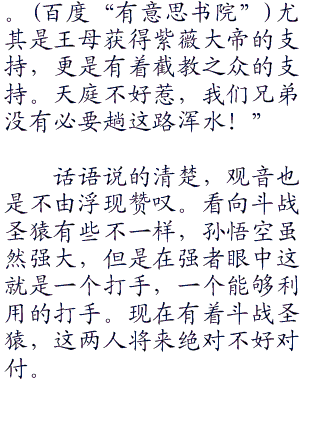 。(百度“有意思书院”)尤
其是王母获得紫薇大帝的支
持，更是有着截教之众的支
持。天庭不好惹，我们兄弟
没有必要趟这路浑水！”
话语说的清楚，观音也
是不由浮现赞叹。看向斗战
圣猿有些不一样，孙悟空虽
然强大，但是在强者眼中这
就是一个打手，一个能够利
用的打手。现在有着斗战圣
猿，这两人将来绝对不好对
付。